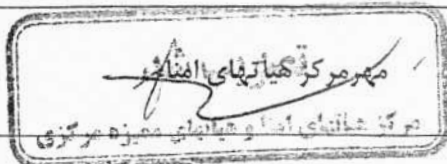 مهر مرکز هیأتهای امناء
مرکز هیأتهای امنا و هیأتهای ممیزه مرکزی